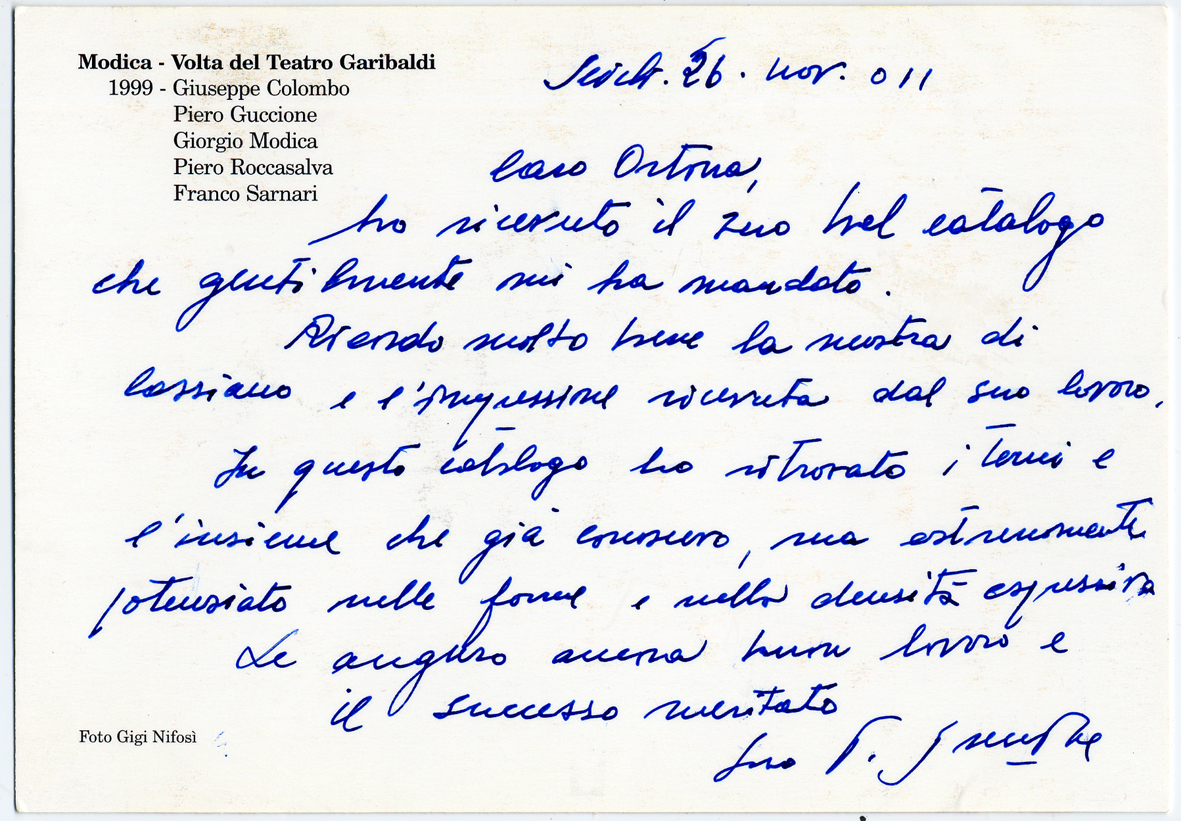 Modica - Volta del Teatro Garibaldi
1999 - Giuseppe Colombo
Piero Guccione
Giorgio Modica
Piero Roccasalva
Franco Sarnari
26. nov. 011
Caro Ortona,
ho ricevuto il suo bel catalogo
che gentilmente mi ha mandato.
Ricordo molto bene la mostra di
e l'impressione ricevuta dal suo lavoro.
In questo catalogo ho ritrovato i temi e
l'insieme che già conoscevo, ma estremamente
potenziato nelle forme e nella densità espressiva
Le auguro ancora buon lavoro e
il successo meritato
Suo P. Guccione
Foto Gigi Nifosì